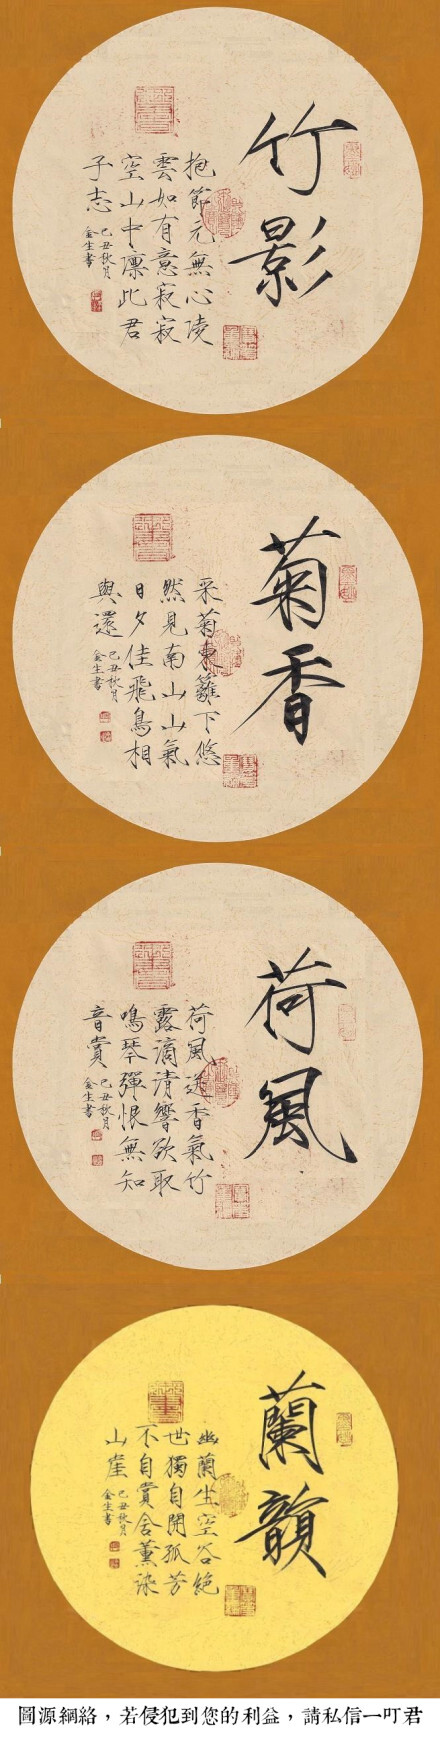 竹影
抱節元無心陵
雲如有意寂寂
空山中凛此君
子志
己丑秋月
金生書
菊香
采菊東籬下悠
然見南山山氣
日夕佳飛鳥相
與還
己丑秋月
金生書
荷風
荷風送香氣竹
露滴清響欲取
鳴琴彈恨無知
音賞
己丑秋月
金生書
蘭韻
幽蘭生空谷絕
世獨自開孤芳
不自賞舍薰染
山崖
己丑秋月
金生書
圖源網絡，若侵犯到您的利益，請私信一叮君